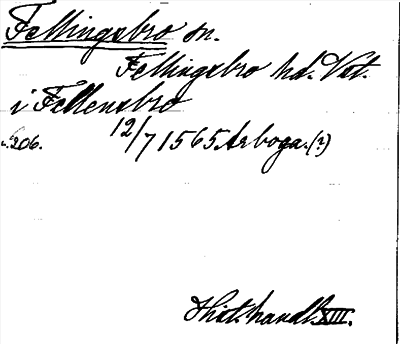 Fellingsbro sn.
Fellingsbro hd. Vst.
i Fellensbro
s. 206. 12/7 1565 Arboga. (?)
Hist. handl. XIII.